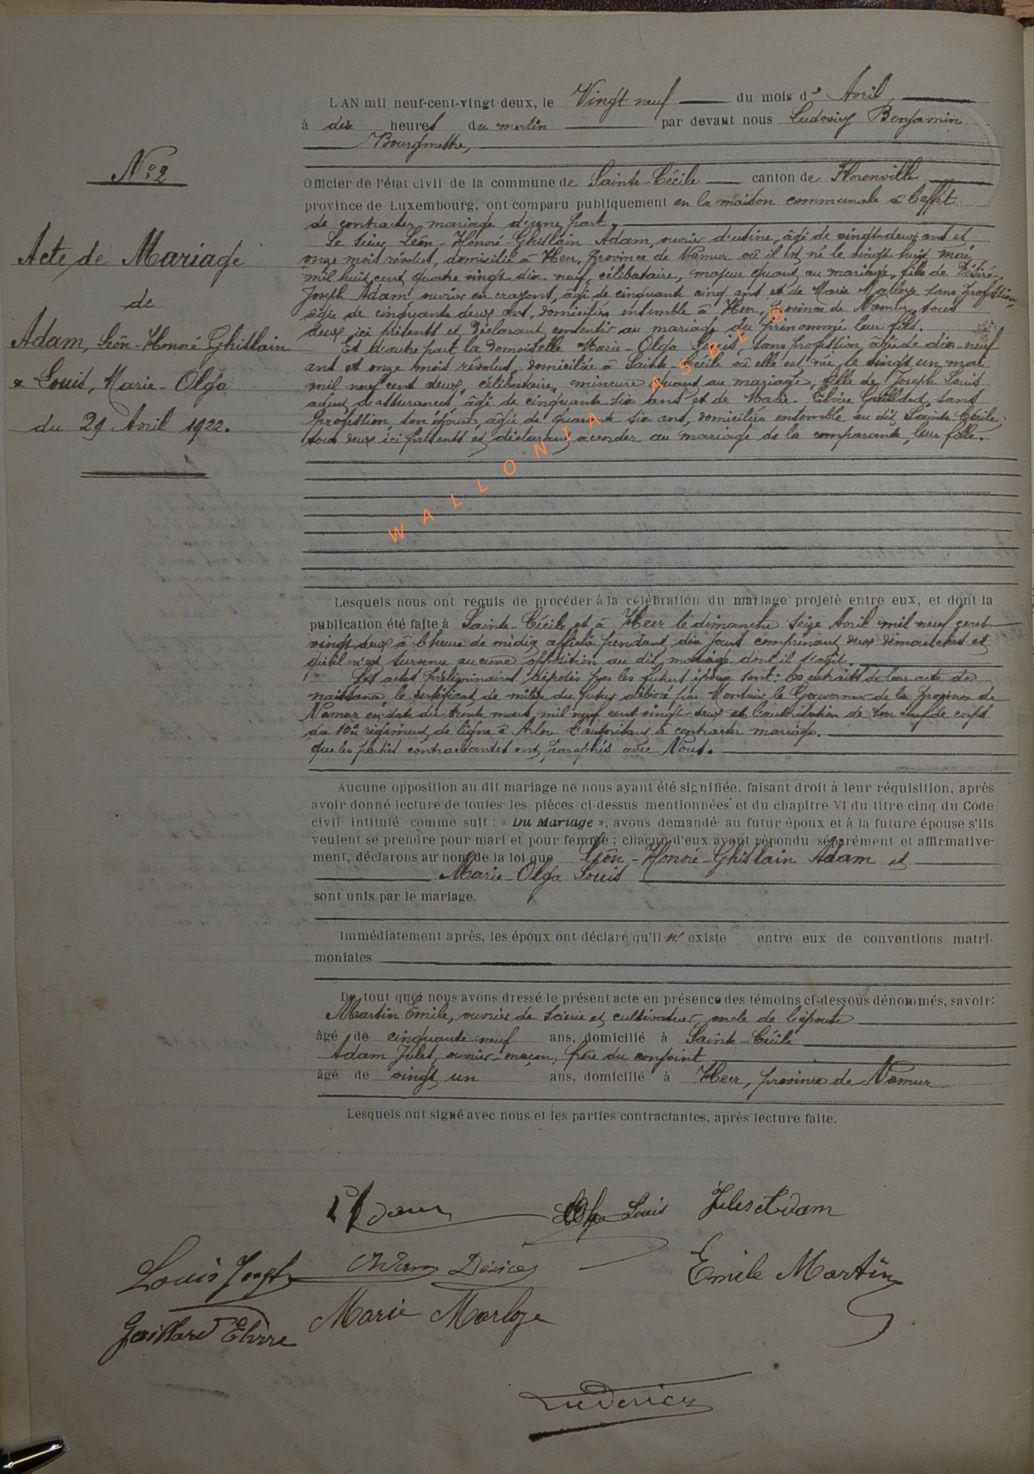 N° 2
Acte de Mariage
de
Adam, Léon-Honoré Ghislain
& Louis, Marie-Olga
du 29 Avril 1922.
L'AN mil neuf-cent-vingt deux, le Vingt neuf du mois d' Avril
à dix heures du matin par devant nous Ludovicy Benjamin
Bourgmestre,
Officier de l'état civil de la commune de Sainte-Cécile canton de Florenville
province de Luxembourg, ont comparu publiquement en la maison communale à l'effet
de contracter mariage d'une part,
Le sieur Léon-Honoré Ghislain Adam, ouvrier d'usine, âgé de vingt-deux ans et
onze mois révolus, domicilié à Heer, province de Namur où il est né le vingt huit mai
mil huit cent quatre vingt dix-neuf, célibataire, majeur quant au mariage, fils de Désiré-
Joseph Adam, ouvrier en crayons, âgé de cinquante cinq ans et de Marie Marloye sans profession
âgée de cinquante deux ans, domiciliés ensemble à Heer, province de Namur, tous
deux ici présents et déclarant consentir au mariage du prénommé leur fils.
Et d'autre part la demoiselle Marie-Olga Louis, sans profession, âgée de dix-neuf
ans et onze mois révolus, domiciliée à Sainte-Cécile où elle est née, le vingt un mai
mil neuf cent deux, célibataire, mineure quant au mariage, fille de Joseph Louis
agent d'assurances, âgé de cinquante six ans et de Marie-Elvire Gaillard, sans
profession, son épouse, âgée de quarante six ans, domiciliés ensemble au dit Sainte-Cécile;
tous deux ici présents et déclarant accorder au mariage de la comparante, leur fille.
WALLONIA ASBL ©
Lesquels nous ont requis de procéder à la célébration du mariage projeté entre eux, et dont la
publication été faite à Sainte-Cécile et à Heer le dimanche seize Avril mil neuf cent
vingt deux à l'heure de midi, affichée pendant dix jours comprenant deux dimanches et
qu'il n'est survenu aucune opposition au dit mariage dont il s'agit.
Les actes préliminaires déposés par les futurs époux sont: les extraits de leur acte de
naissance, le certificat de milice du futur délivré par Monsieur le Gouverneur de la province de
Namur en date du trente mars mil neuf cent vingt deux et l'autorisation de son chef de corps
du 10e régiment de ligne à Arlon l'autorisant à contracter mariage.
que les parties contractantes ont paraphés avec Nous.
Aucune opposition au dit mariage ne nous ayant été signifiée, faisant droit à leur réquisition, après
avoir donné lecture de toutes les pièces ci-dessus mentionnées et du chapitre VI du titre cinq du Code
civil intitulé comme suit: « Du Mariage », avons demandé au futur époux et à la future épouse s'ils
veulent se prendre pour mari et pour femme; chacun d'eux ayant répondu séparément et affirmative-
ment, déclarons au nom de la loi que Léon-Honoré-Ghislain Adam et
Marie-Olga Louis
sont unis par le mariage.
Immédiatement après, les époux ont déclaré qu'il n' existe entre eux de conventions matri-
moniales
De tout quoi nous avons dressé le présent acte en présence des témoins ci-dessous dénommés, savoir:
Martin Emile, ouvrier de scierie et cultivateur, oncle de l'épouse
âgé de cinquante neuf ans, domicilié à Sainte-Cécile
Adam Jules, ouvrier-maçon, frère du conjoint
âgé de vingt un ans, domicilié à Heer, province de Namur
Lesquels ont signé avec nous et les parties contractantes, après lecture faite.
L Adam Olga Louis Jules Adam
Louis Joseph Adam Désiré Emile Martin
Gaillard Elvire Marie Marloye
Ludovicy